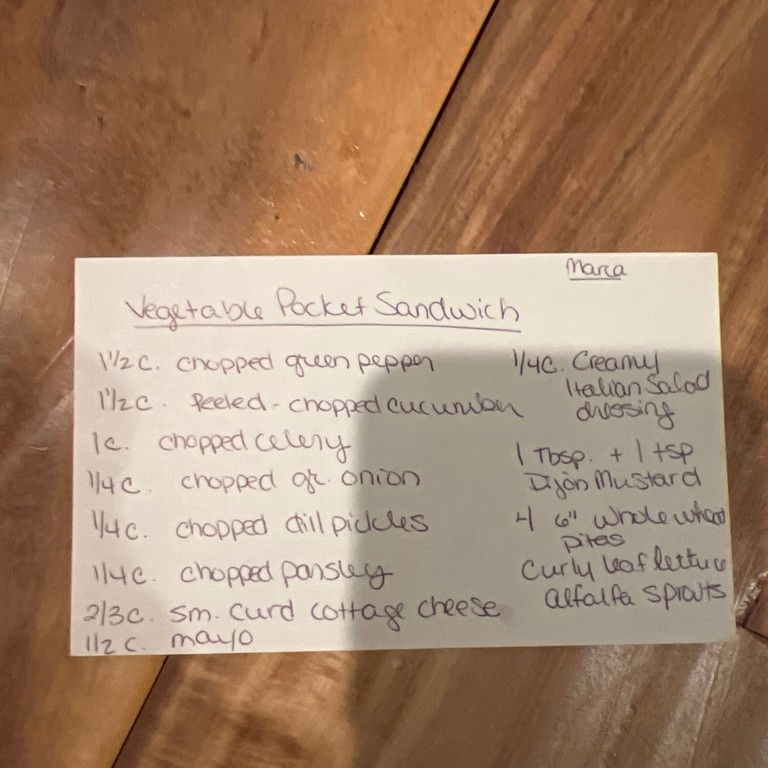 Marca
Vegetable Pocket Sandwich
1 1/2 c. chopped green pepper
1 1/2 c. Peeled - chopped cucumber
1 c. chopped celery
1/4 c. chopped gr. onion
1/4 c. chopped dill pickles
1/4 c. chopped parsley
2/3 c. sm. curd cottage cheese
1/2 c. mayo
1/4 c. Creamy
Italian Salad
dressing
1 Tbsp. + 1 tsp
Dijon Mustard
4 6" whole wheat
pitas
Curly leaf lettuce
alfalfa sprouts